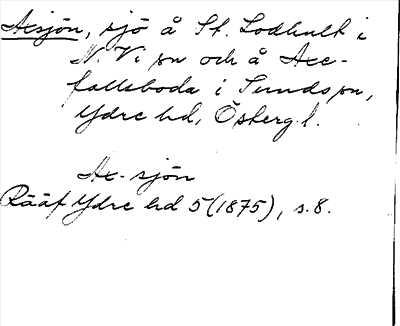 Axsjön, sjö å St. Lodhult i
N. Vi sn och å Axe-
fallsboda i Sunds sn,
Ydre hd, Östergl.
Ax-sjön
Rääf Ydre hd 5 (1875), s. 8.